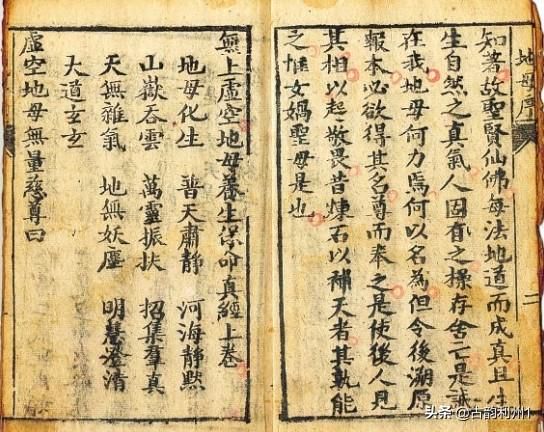 地母序
二
知著故聖賢仙佛每法地道而成真且生
生自然之真氣人固有之操存舍亡是誠
在我地母何力焉何以名為但令後溯原
報本必欲得其名尊而奉之是使後人見
其相以起敬畏昔煉石以補天者其孰能
之惟女媧聖母是也
無上虛空地母養生保命真經上卷
地母化生 普天肅靜 河海靜默
山嶽吞雲 萬靈振扶 招集羣真
天無雜氣 地無妖塵 明慧澄清
大道玄玄
虛空地母無量慈尊曰
头条 @古韵利州1